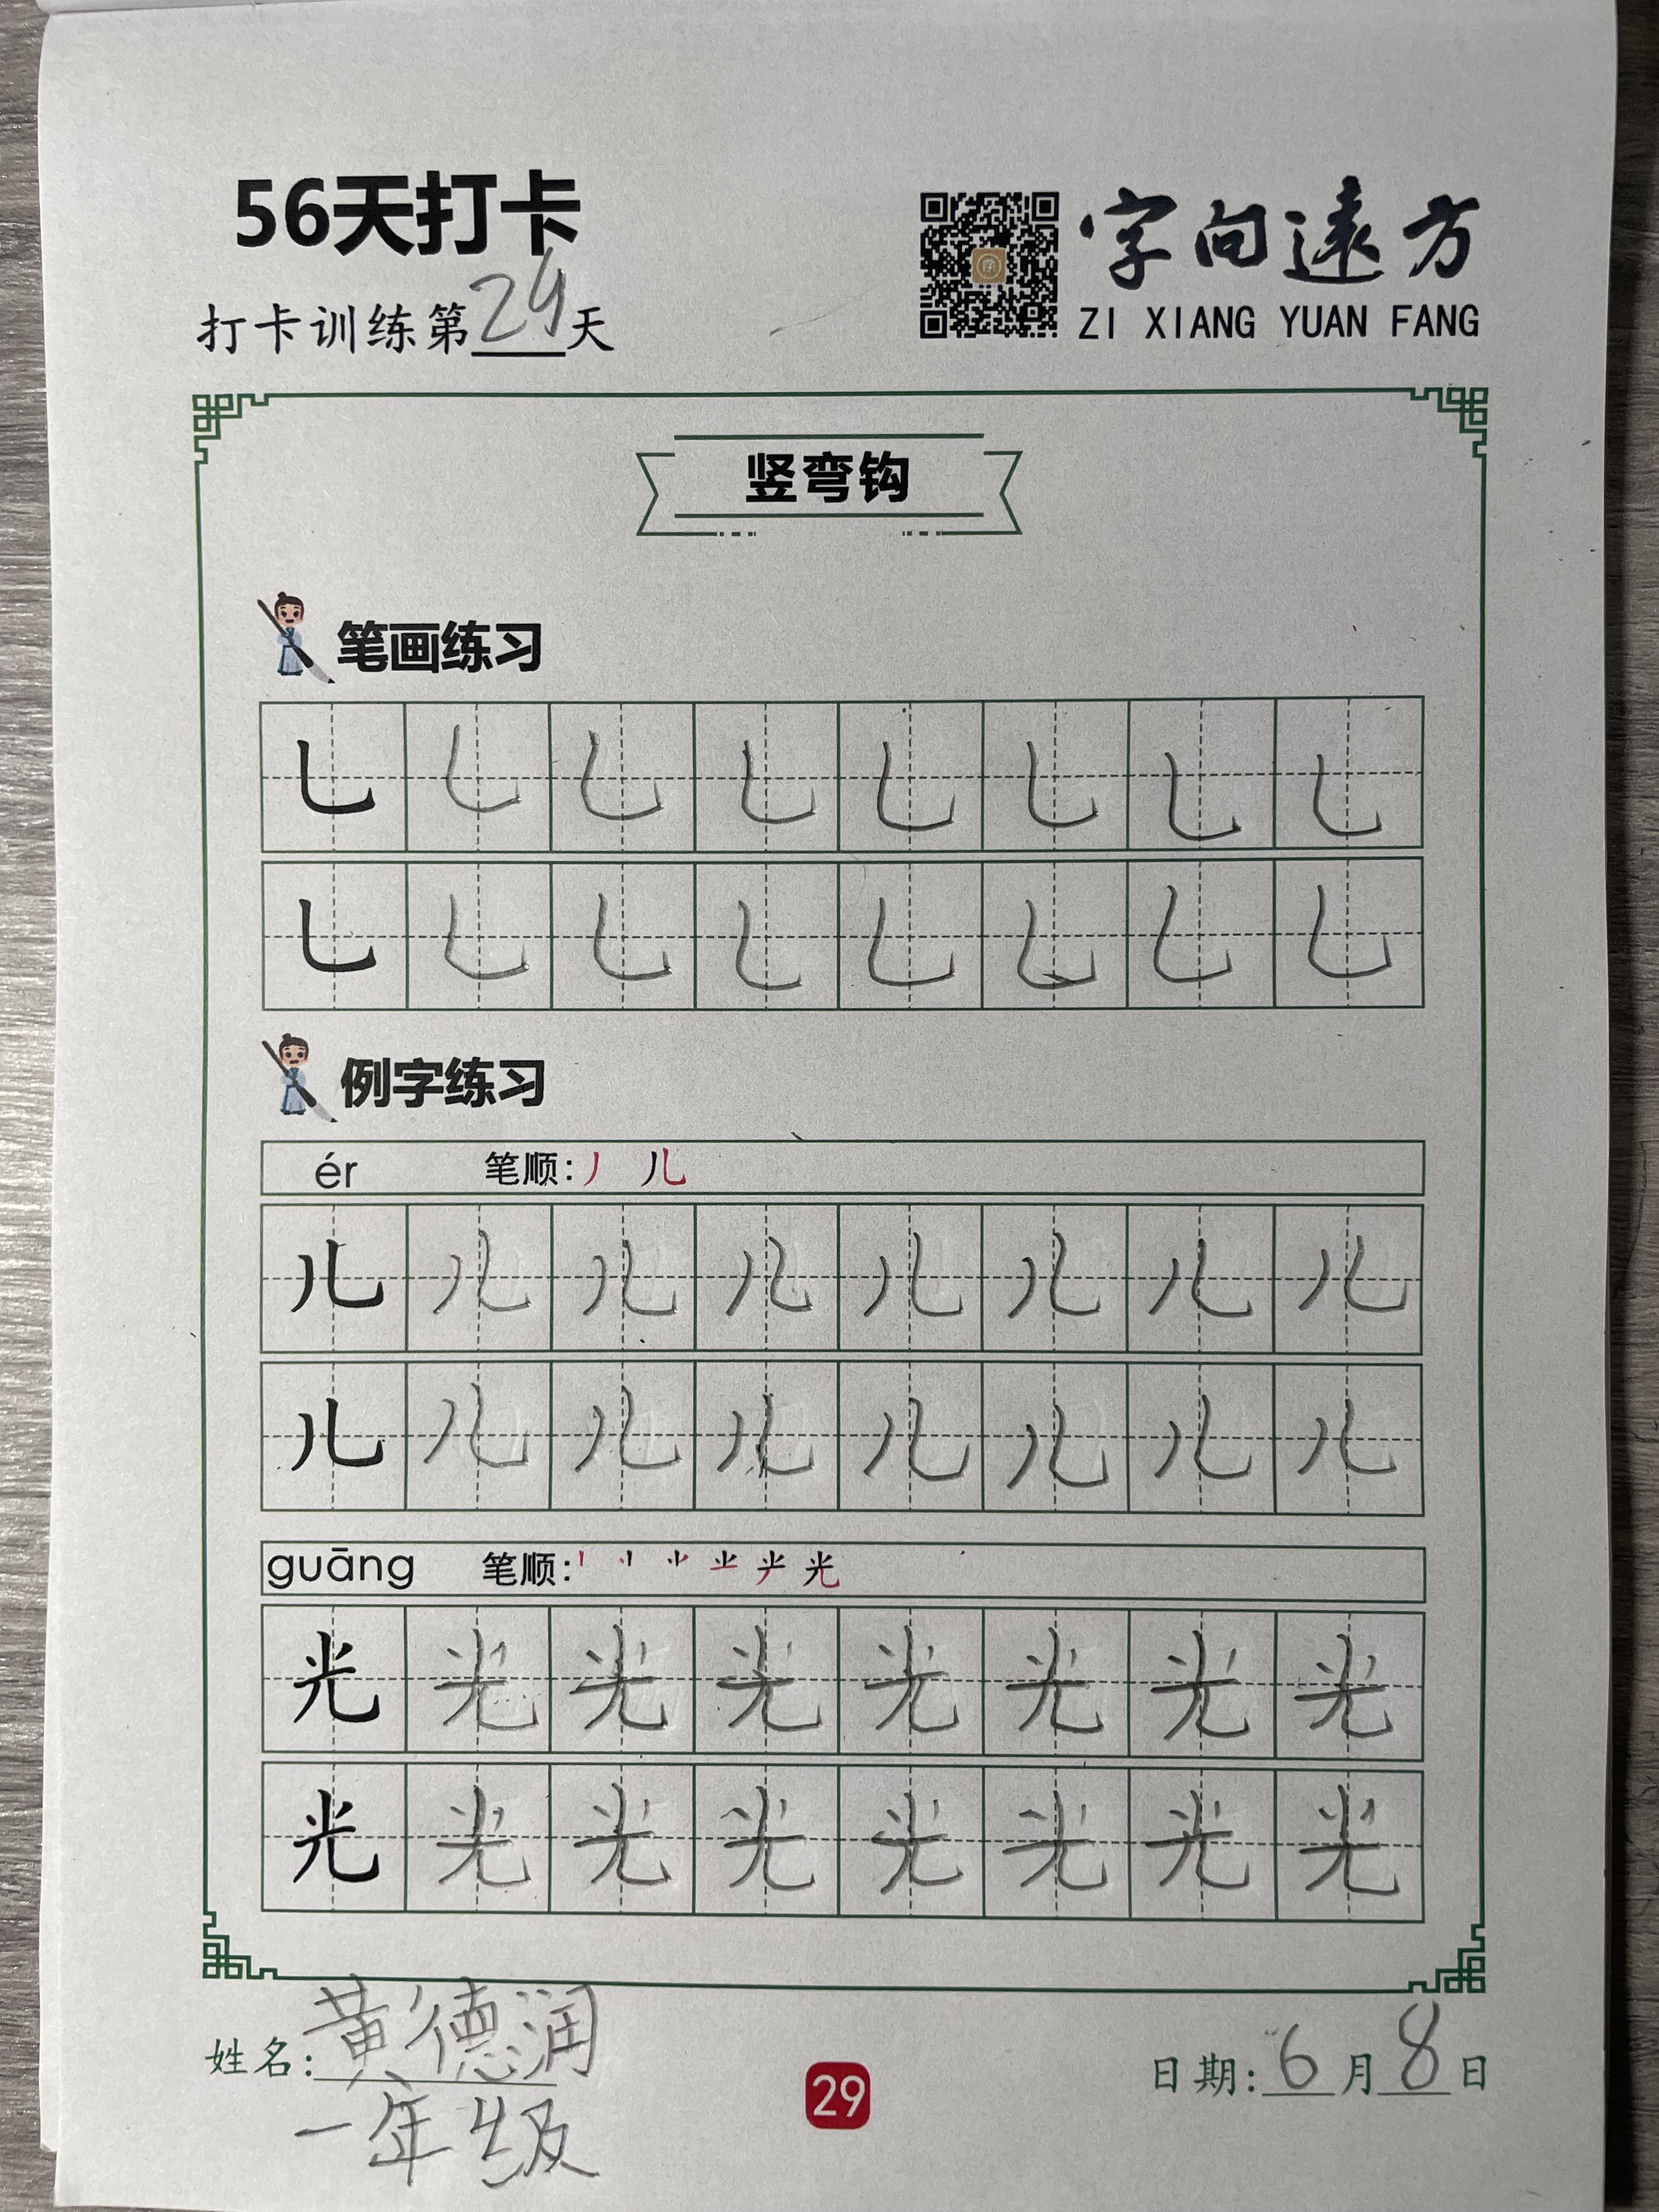 56天打卡
字向遠方
打卡训练第29天
ZI XIANG YUAN FANG
竖弯钩
笔画练习
乚 乚 乚 乚 乚 乚 乚 乚
乚 乚 乚 乚 乚 乚 乚 乚
例字练习
ér 笔顺: 丿 儿
儿 儿 儿 儿 儿 儿 儿 儿
儿 儿 儿 儿 儿 儿 儿 儿
guāng 笔顺: 光
光 光 光 光 光 光 光 光
光 光 光 光 光 光 光 光
姓名: 黄德润
日期: 6月8日
一年级
29